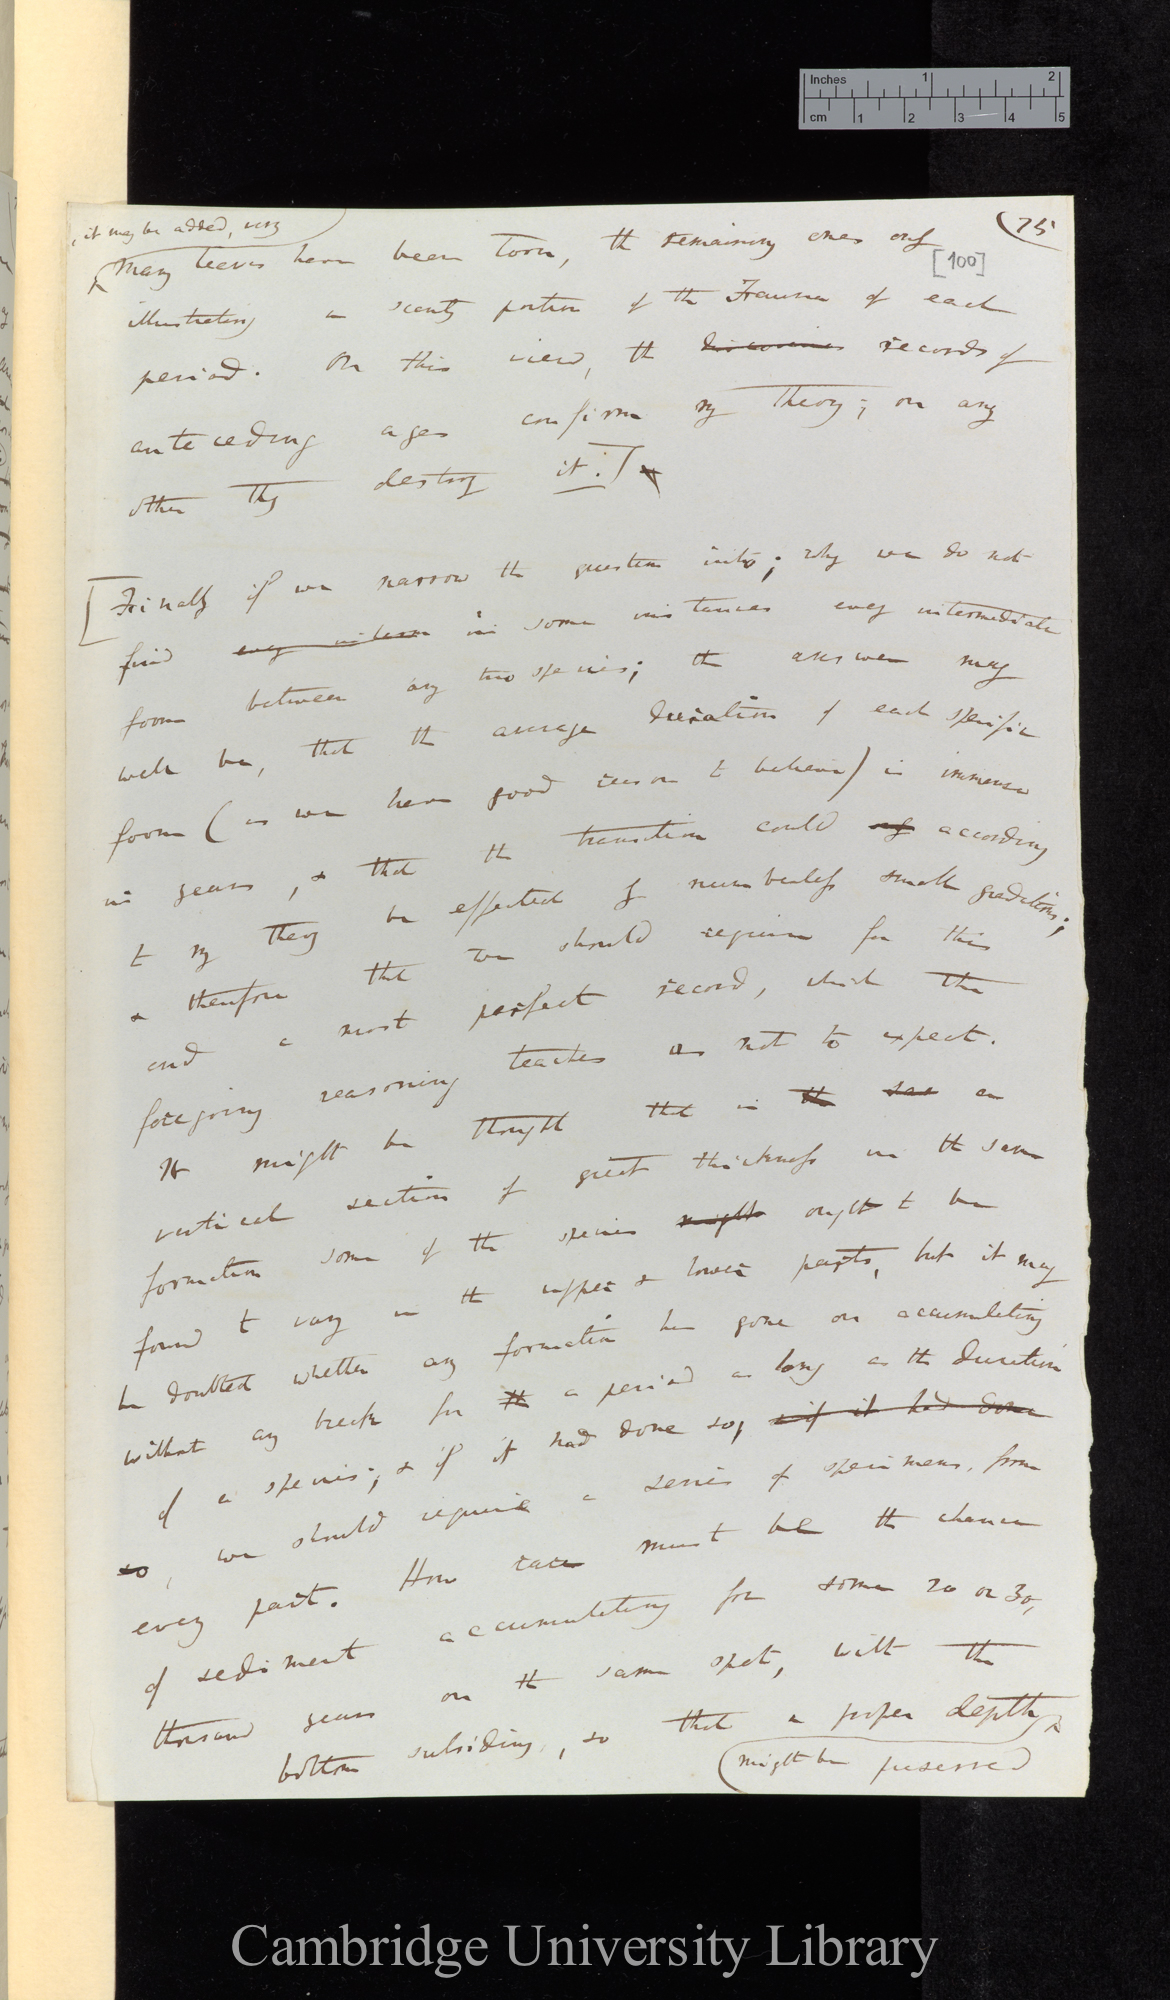 Inches 1 2
cm 1 2 3 4 5
(75
, it may be added, very
many leaves have been torn, the remaining ones only
[100]
illustrating a scanty portion of the Fauna of each
period. On this view, the records of
anteceding ages confirm my theory; on any
other they destroy it.]
[Finally if we narrow the question into; why we do not
find every interm in some instances every intermediate
form between any two species; the answer may
well be, that the average duration of each specific
form (as we have good reason to believe) is immense
in years, & that the transition could according
to my theory be effected by numberless small gradations;
& therefore that we should require for this
end a most perfect record, which the
foregoing reasoning teaches us not to expect.
It might be thought that in the sec a
vertical section of great thickness in the same
formation some of the species might ought to be
found to vary in the upper & lower parts, but it may
be doubted whether any formation has gone on accumulating
without any break for th a period as long as the duration
of a species; & if it had done so, & if it had done
so, we should require a series of specimens from
every part. How rare must be the chance
of sediment accumulating for some 20 or 30,
thousand years on the same spot, with the
bottom subsiding, so that a proper depth
might be preserved
Cambridge University Library